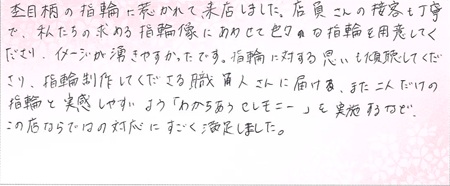 杢目柄の指輪に惹かれて来店しました。店員さんの接客も丁寧
で、私たちの求める指輪像にあわせて色々な指輪を用意してく
ださり、イメージが湧きやすかったです。指輪に対する思いも傾聴してくだ
さり、指輪制作してくださる職人さんに届ける、また二人だけの
指輪と実感しやすいよう「わかちあうセレモニー」を実施するなど、
この店ならではの対応にすごく満足しました。